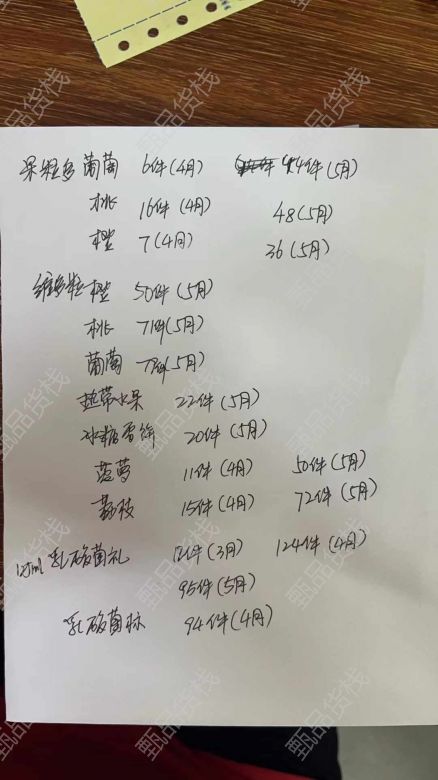 果粒多 葡萄 6件(4月) 44件(5月)
桃 16件(4月) 48(5月)
橙 7(4月) 36(5月)
维多粒 橙 50件(5月)
桃 71件(5月)
葡萄 (5月)
热带水果 22件(5月)
冰糖雪 20件(5月)
蓝莓 11件(4月) 50件(5月)
荔枝 15件(4月) 72件(5月)
乳酸菌礼 12件(3月) 124件(4月)
95件(5月)
乳酸菌标 94件(4月)
甄品货栈